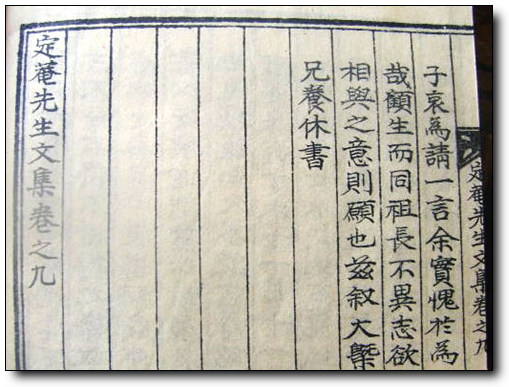 定菴先生文集卷之九
子哀為請一言余實愧於為
哉顧生而同祖長不異志欲
相與之意則願也玆叙大槩
兄養休書
定菴先生文集卷之九